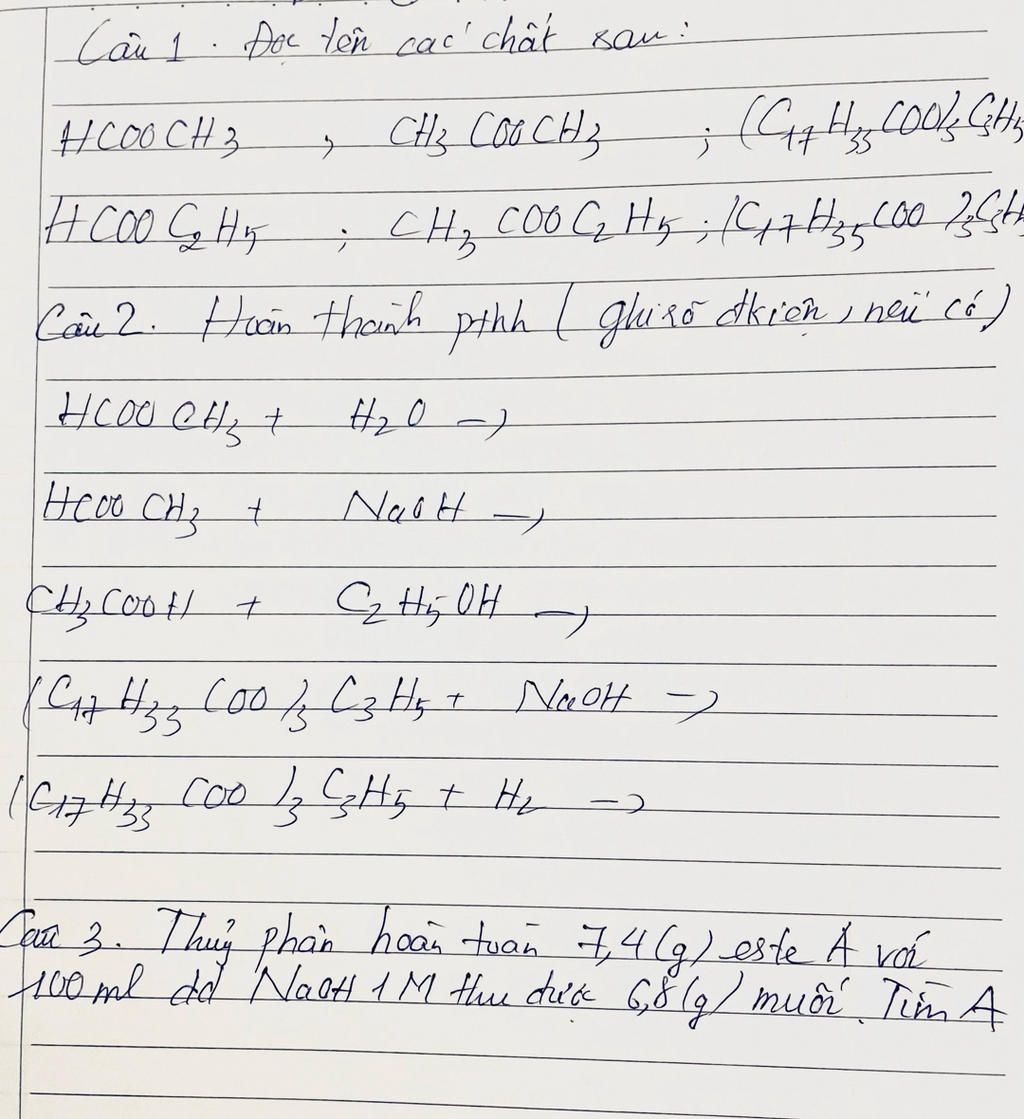 Câu 1. Đọc tên các chất sau:
HCOOCH3 , CH3COOCH3 ; (C17H33COO)3C3H5
HCOOC2H5 ; CH3COOC2H5 ; (C17H35COO)3C3H
Câu 2. Hoàn thành pthh (ghi rõ đkiện, nếu có)
HCOOCH3 + H2O →
HCOOCH3 + NaOH →
CH3COOH + C2H5OH →
(C17H33COO)3C3H5 + NaOH →
(C17H33COO)3C3H5 + H2 →
Câu 3. Thuỷ phân hoàn toàn 7,4(g) este A với
100ml dd NaOH 1M thu được 6,8(g) muối. Tìm A